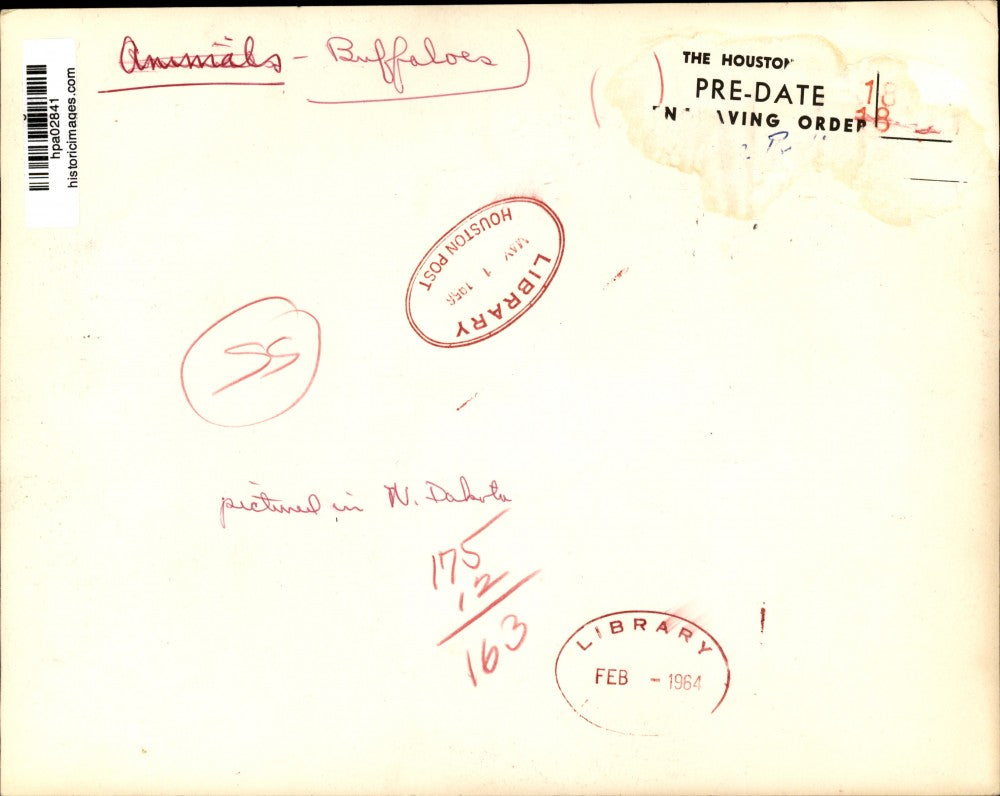 Animals - Buffaloes)
hpa02841
historicimages.com
THE HOUSTO
PRE-DATE
VING ORDER
18
18
HOUSTON POST
MAY 1 1956
LIBRARY
SS
pictured in N. Dakota
175
12
163
LIBRARY
FEB - 1964